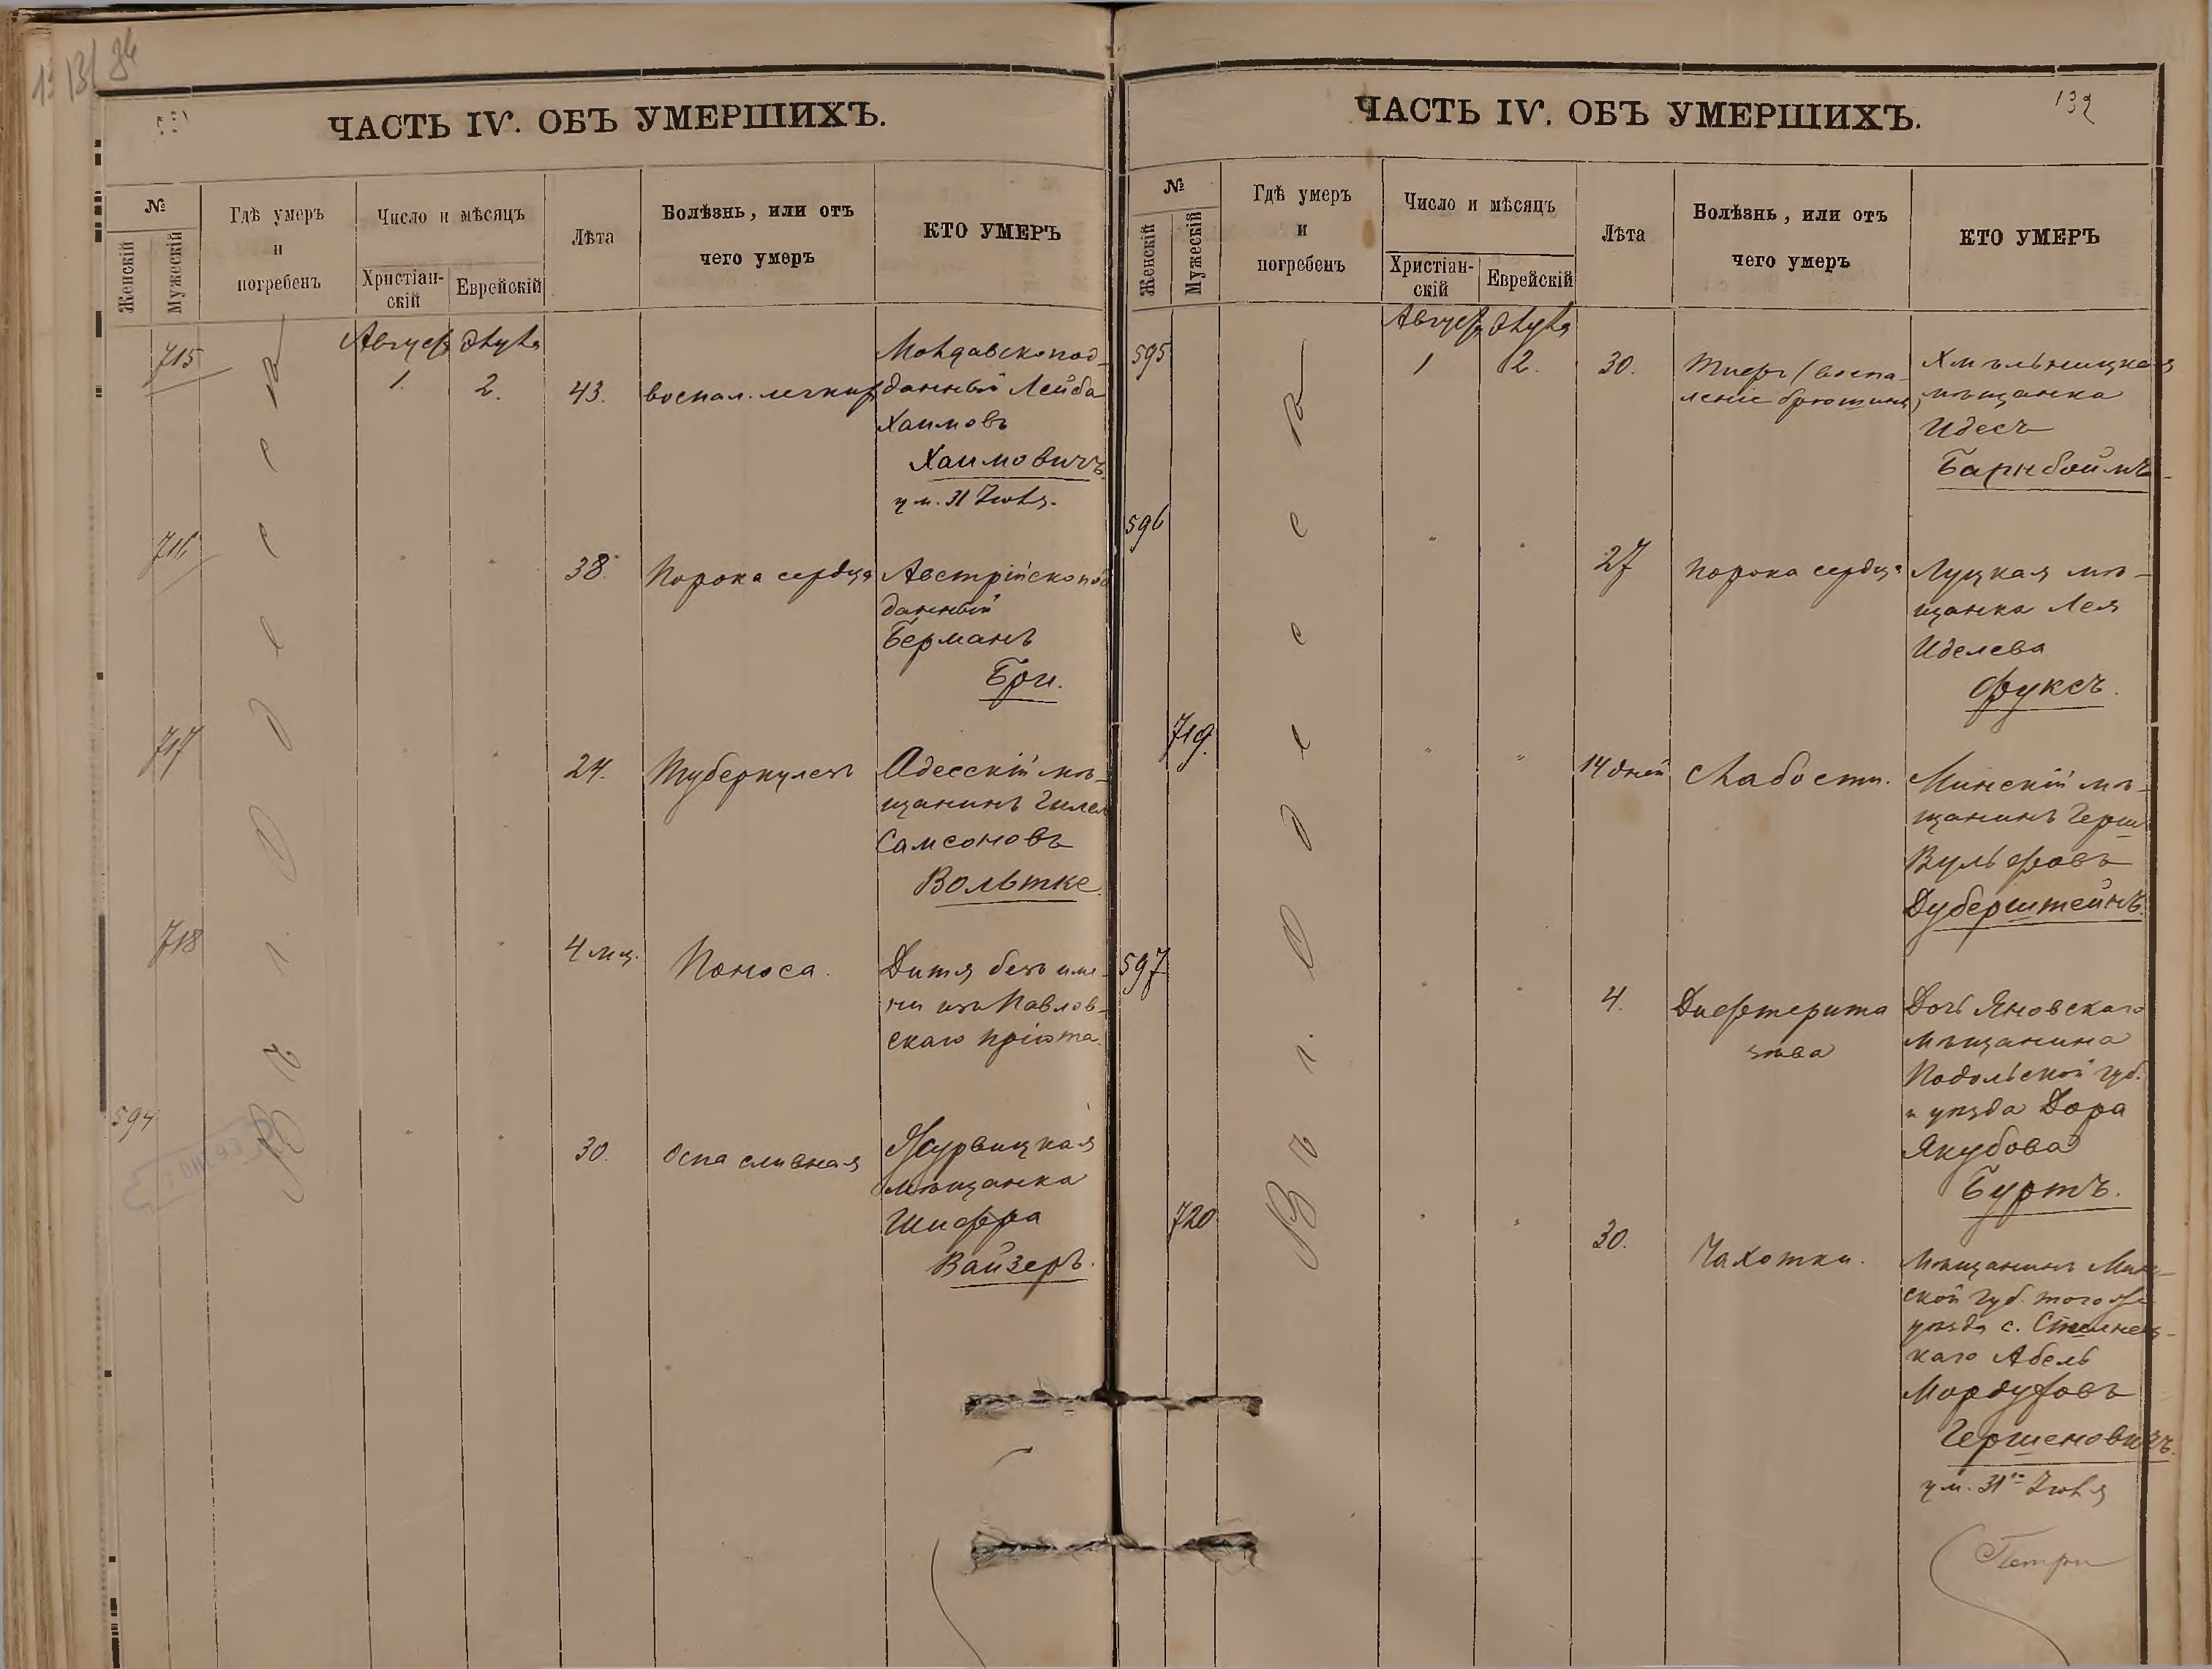 ЧАСТЬ IV. ОБЪ УМЕРШИХЪ.
№
Женскій
Мужескій
Гдѣ умеръ
и
погребенъ
Число и мѣсяцъ
Христіан-
скій
Еврейскій
Лѣта
Болѣзнь, или отъ
чего умеръ
КТО УМЕРЪ
Въ г. Одессѣ
715
Август Элула
1. 2. 43. воспал. легкихъ
Молдавскопод-
данный Лейба
Хаимовъ
Хаимовичъ
ум. 31 Іюля.
716
" " 38. Порока сердца
Австрійскопод
данный
Берманъ
Бри.
717
" " 24. Туберкулезъ
Одесскій мѣ-
щанинъ Гилел
Самсоновъ
Вольтке.
718
" " 4 мц. Поноса.
Дитя безъ име-
ни изъ Павлов-
скаго пріюта.
594
" " 30. Оспа сливная
Журвицкая
мѣщанка
Шифра
Вайзеръ.
139
ЧАСТЬ IV. ОБЪ УМЕРШИХЪ.
№
Женскій
Мужескій
Гдѣ умеръ
и
погребенъ
Число и мѣсяцъ
Христіан-
скій
Еврейскій
Лѣта
Болѣзнь, или отъ
чего умеръ
КТО УМЕРЪ
Въ г. Одессѣ
595
Август Элула
1 2. 30. Тифъ (воспа-
леніе брюшины)
Хмѣльницкая
мѣщанка
Идесъ
Барнбоймъ
596
" " 27 Порока сердца
Луцкая мѣ-
щанка Лея
Иделева
Фуксъ.
719.
" " 14 дней Слабости.
Минскій мѣ-
щанинъ Герш
Вульфовъ
Дуберштейнъ.
597
" " 4. Дифтерита
зѣва
Дочь Яновскаго
мѣщанина
Подольской губ.
и уѣзда Дора
Якубова
Буртъ.
720
" " 30. Чахотки.
Мѣщанинъ Мин-
ской губ. того же
уѣзда с.
каго Абель
Мордуховъ
Гершеновичъ.
ум. 31го Іюля